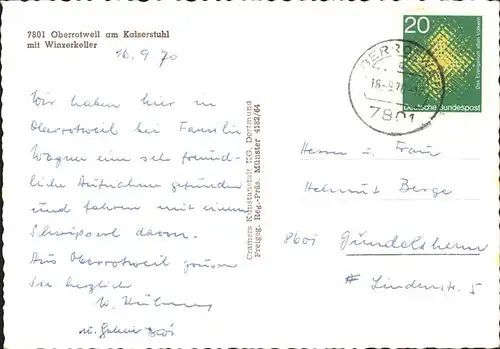 7801 Oberrotweil am Kaiserstuhl
mit Winzerkeller
16.9.70
Wir haben hier in
Oberrotweil bei Familie
Wagner eine seh freund-
liche Aufnahme gefunden
und fahren mit einem
Schwipserl davon.
Aus Oberrotweil grüssen
Sie herzlich
Cramers Kunstanstalt KG, Dortmund
Freigeg. Reg.-Präs. Münster 4182/64
20
Deutsche Bundespost
7801
Herrn u. Frau
Helmut Berge
8601 Gundelsheim
Lindenstr. 5